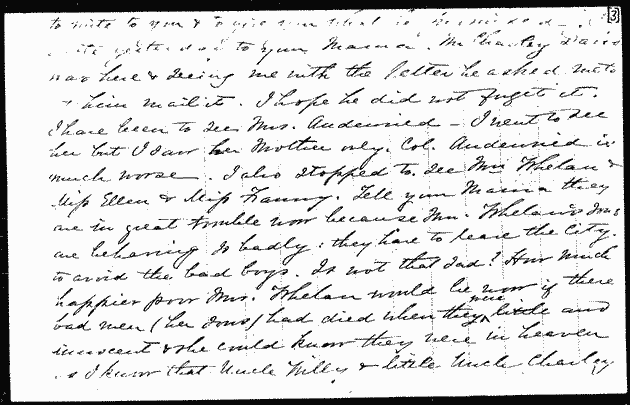 3
to write to you & to give you what is
write yesterday to your Mama. Mr Charley
was here & seeing me with the letter he asked me to
him mail it. I hope he did not forget it.
I have been to see Mrs. Audenried – I went to see
her but I saw her Mother only. Col. Audenried is
much worse. I also stopped to see Mrs Whelan &
Miss Ellen & Miss Fanny. Tell your Mama they
are in great trouble now because Mrs. Whelan's sons
are behaving so badly: they have to leave the City.
to avoid the bad boys. Is not that sad? How much
happier poor Mrs. Whelan would be now if these
bad men (her sons) had died when they were little and
innocent & she could know they were in heaven
as I know that Uncle Willy & little Uncle Charley